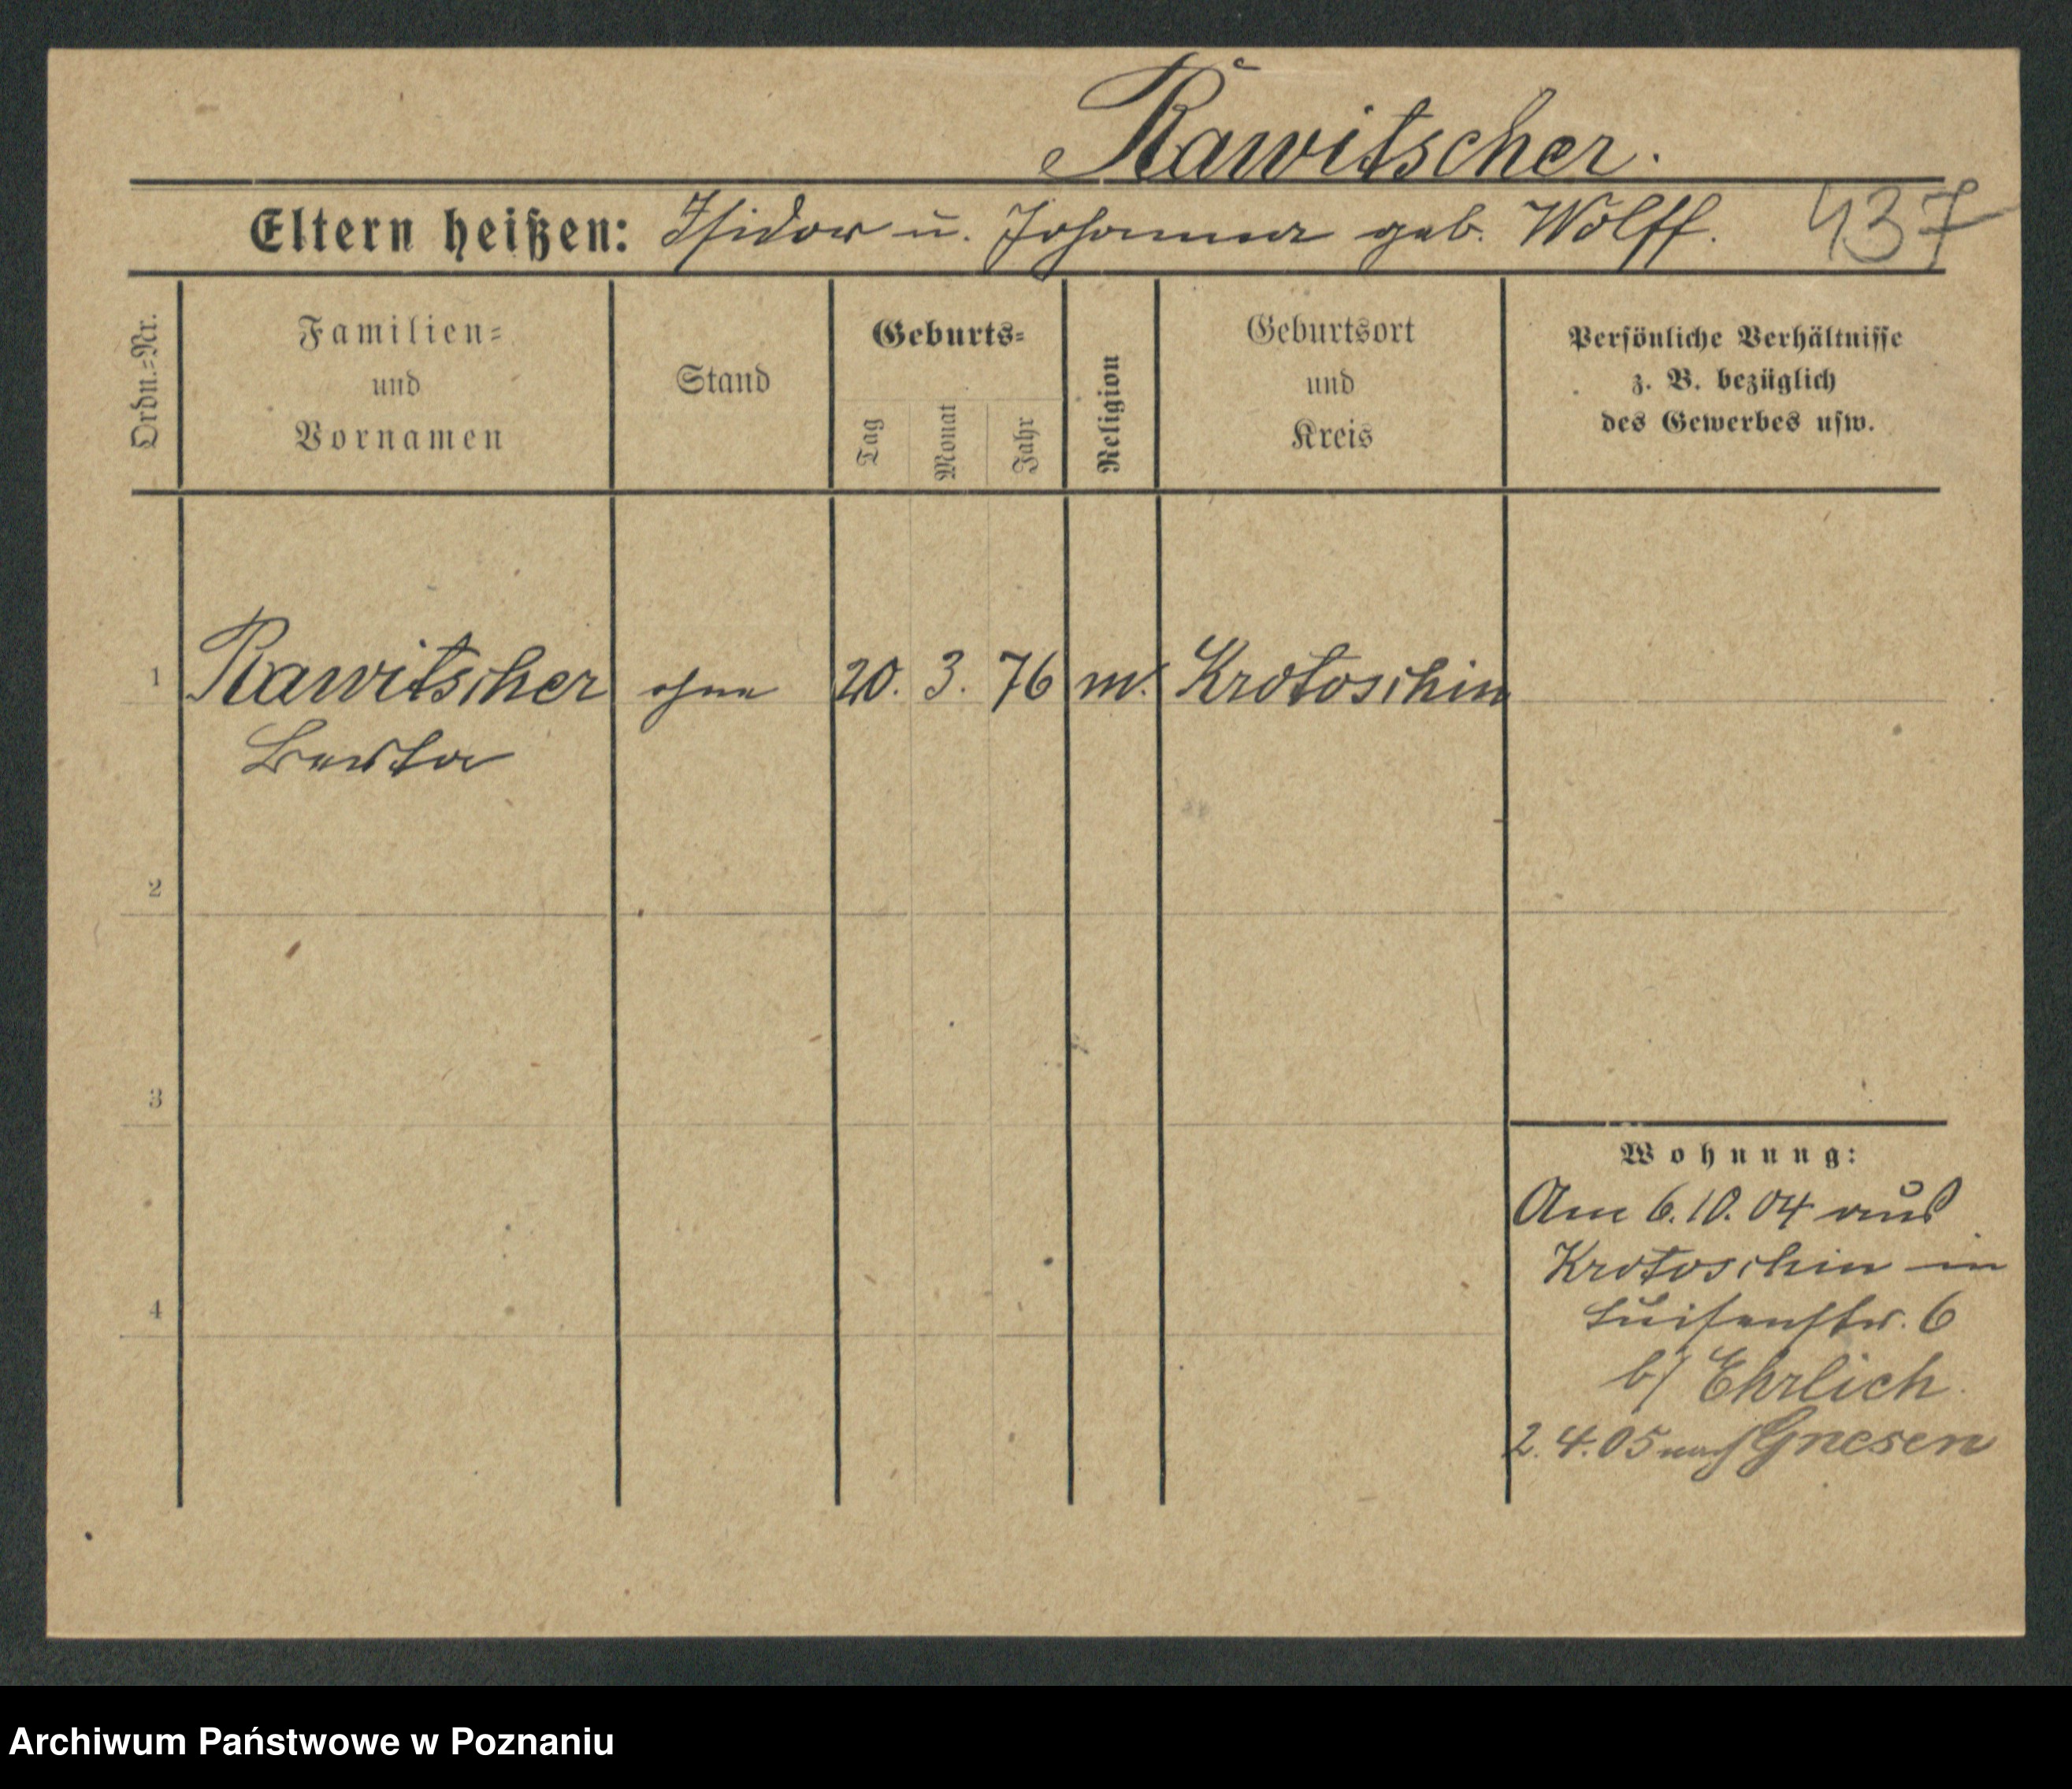 Rawitscher.
Eltern heißen: Isidor u. Johanna geb. Wolff. 437
Ordn.=Nr.
Familien=
und
Vornamen
Stand
Geburts=
Tag
Monat
Jahr
Religion
Geburtsort
und
Kreis
Persönliche Verhältnisse
z. B. bezüglich
des Gewerbes usw.
1 Rawitscher ohne 20. 3. 76 m. Krotoschin
Berta
2
3
4
Wohnung:
Am 6.10.04 aus
Krotoschin in
Luisenstr. 6
b/ Ehrlich
2.4.05 nach Gnesen
Archiwum Państwowe w Poznaniu